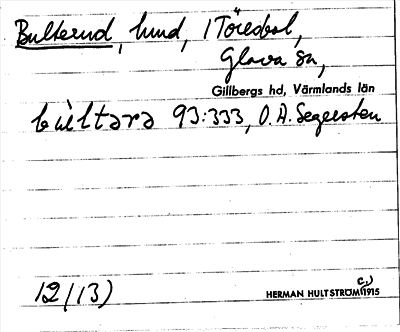 Bulterud, lund, 1 Töresbol,
Glava sn,
Gillbergs hd, Värmlands län
93:333, O. A. Segersten
12/(13)
HERMAN HULTSTRÖM 1915